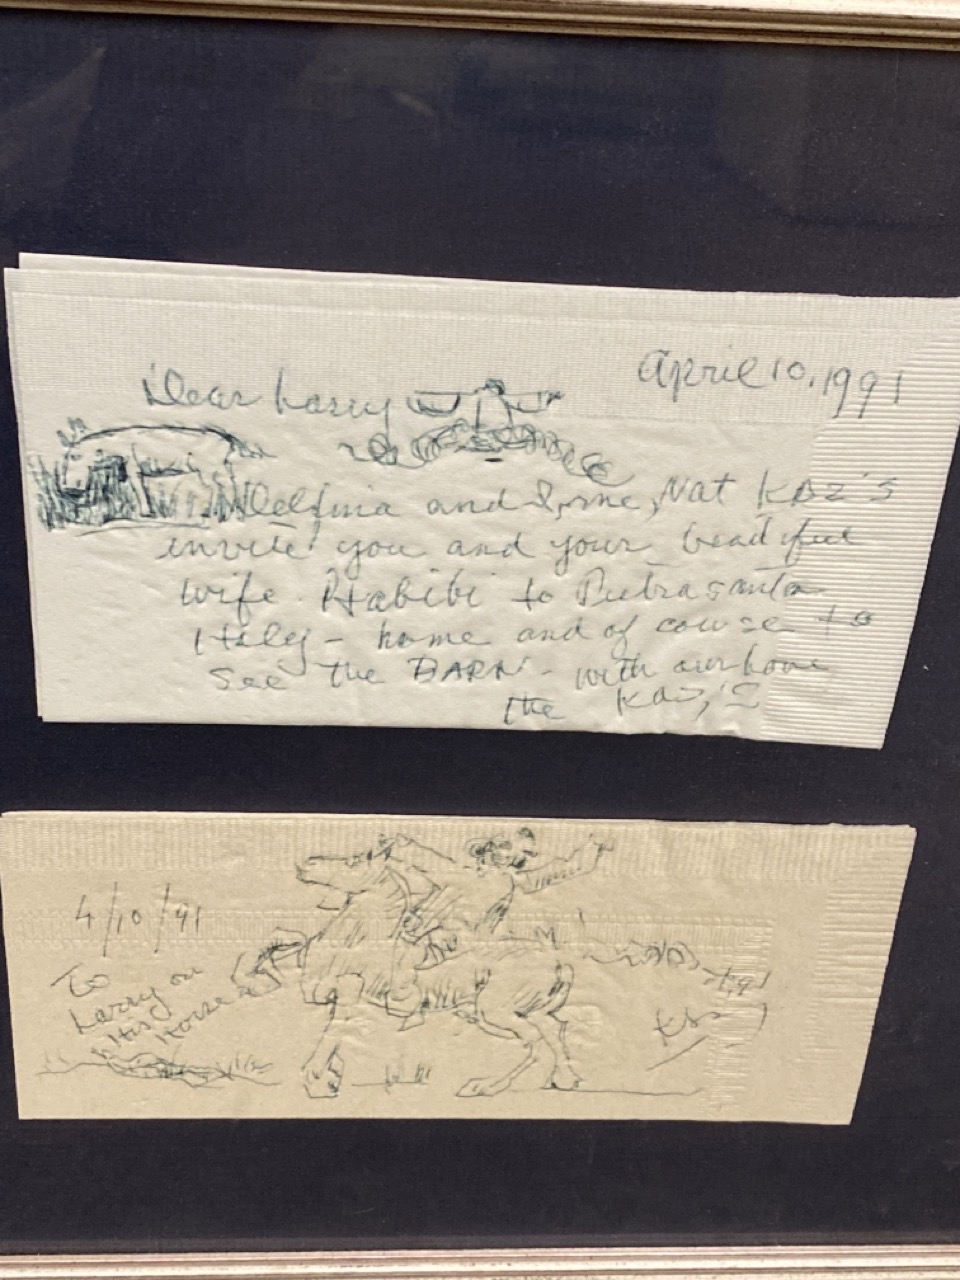 April 10, 1991
Dear Larry
Delfina and I, me, Nat KAZ's
invite you and your beautiful
wife Habibi to Pietrasanta
Italy - home and of course to
see the BARN - with our love
the Kaz's
4/10/91
To
Larry on
His
Horse
Kaz